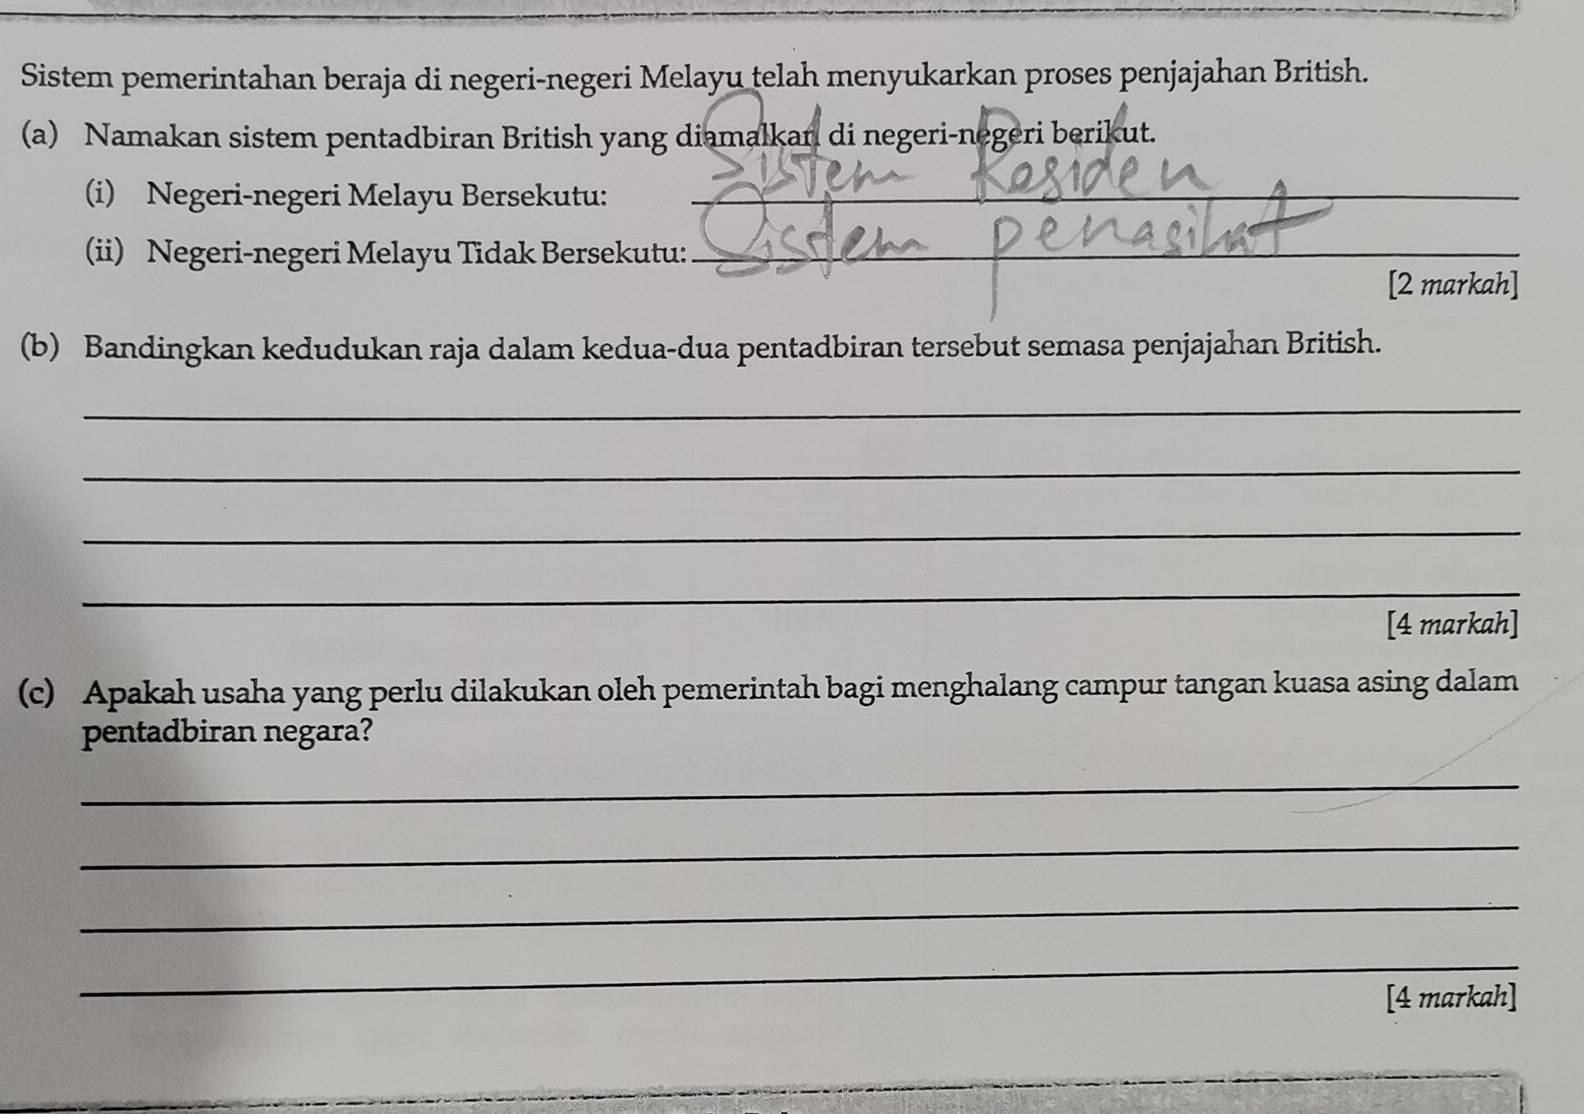 Sistem pemerintahan beraja di negeri-negeri Melayu telah menyukarkan proses penjajahan British.
(a) Namakan sistem pentadbiran British yang diamalkan di negeri-negeri berikut.
(i) Negeri-negeri Melayu Bersekutu: Sistem Residen
(ii) Negeri-negeri Melayu Tidak Bersekutu: Sistem penasihat
[2 markah]
(b) Bandingkan kedudukan raja dalam kedua-dua pentadbiran tersebut semasa penjajahan British.
[4 markah]
(c) Apakah usaha yang perlu dilakukan oleh pemerintah bagi menghalang campur tangan kuasa asing dalam
pentadbiran negara?
[4 markah]